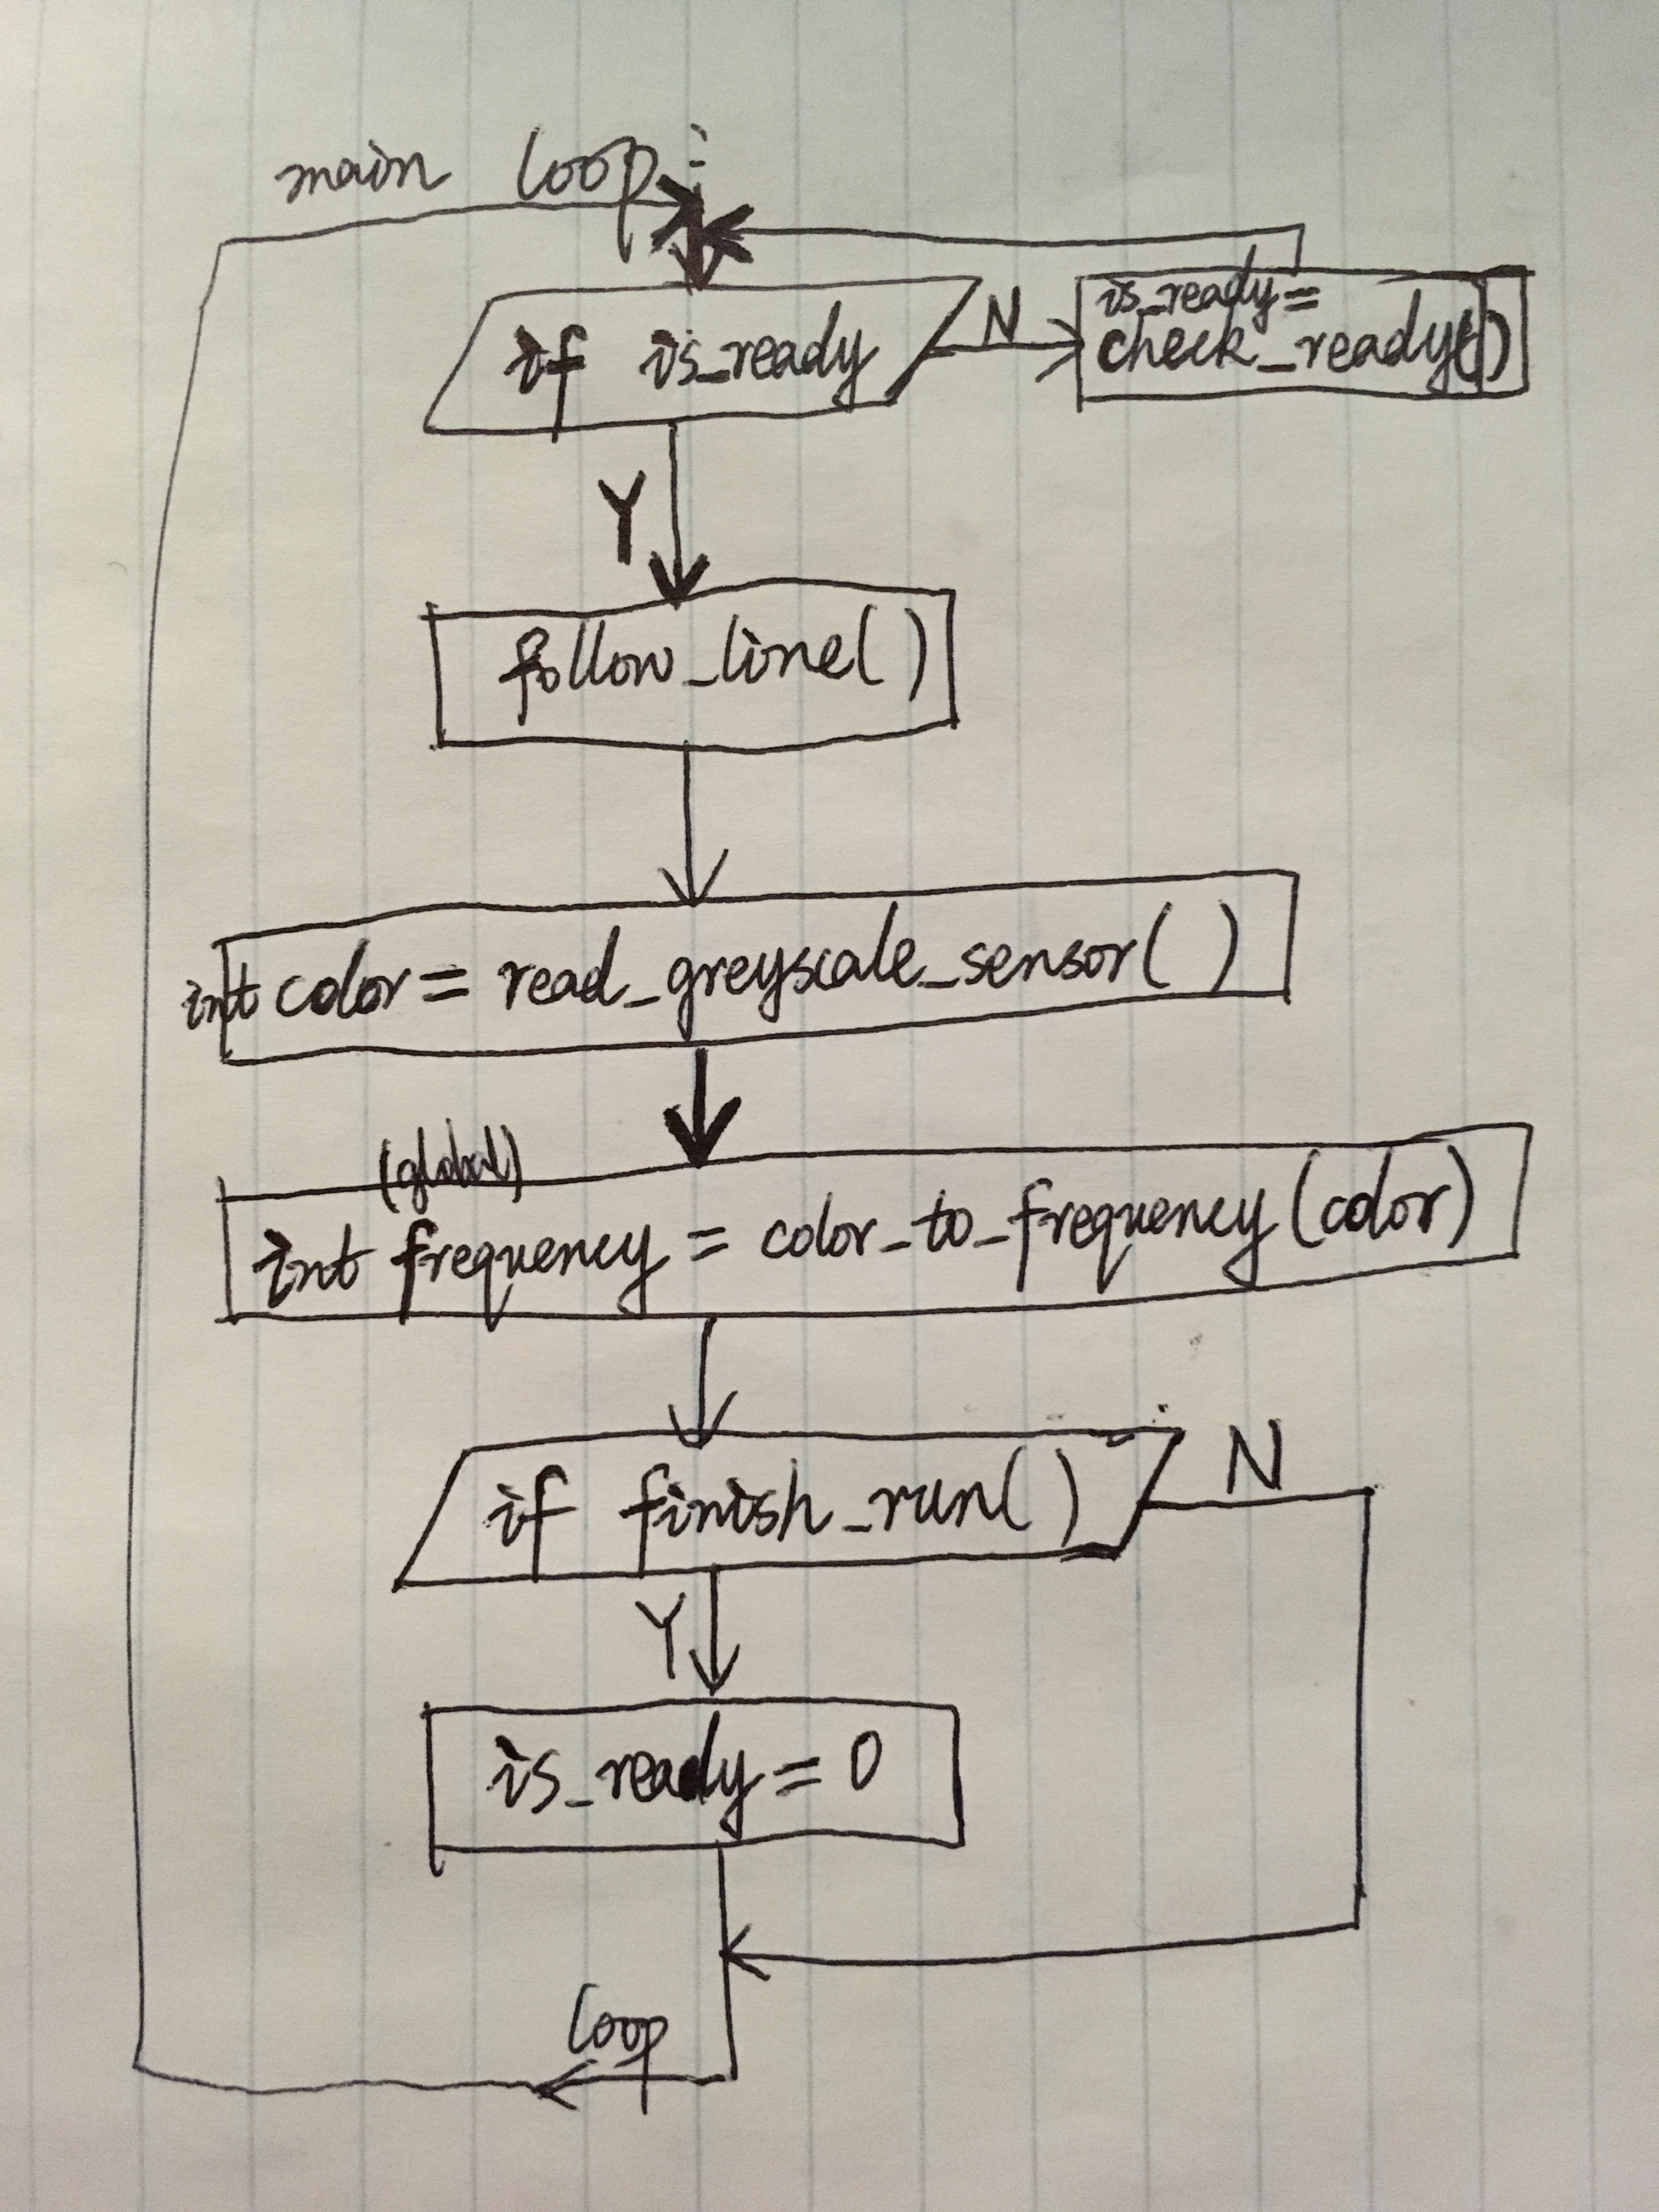 main loop:
if is_ready
N
is_ready =
check_ready()
Y
follow_line()
int color = read_greyscale_sensor( )
(global)
int frequency = color_to_frequency(color)
if finish_run( )
N
Y
is_ready = 0
loop